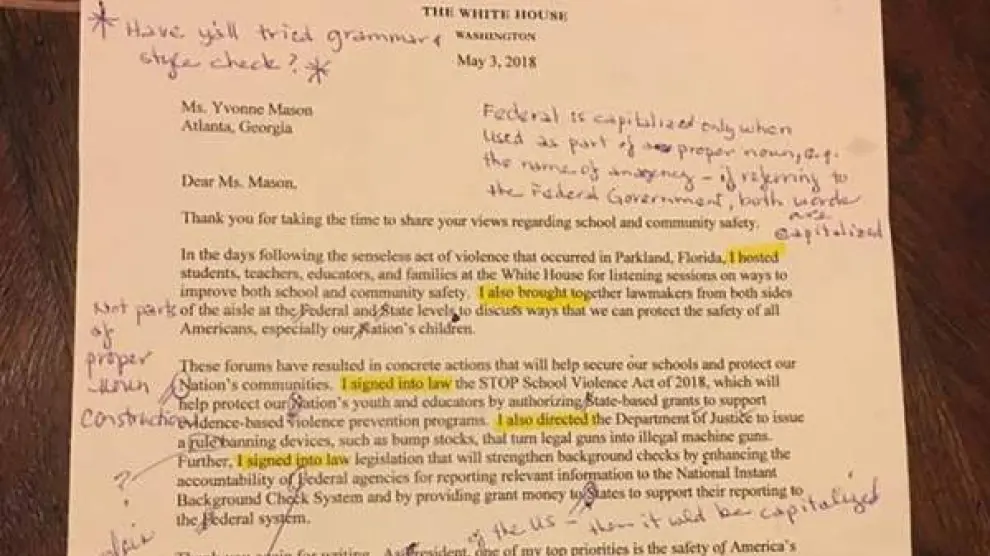 THE WHITE HOUSE
WASHINGTON
May 3, 2018
* Have y'all tried grammar &
style check? *
Ms. Yvonne Mason
Atlanta, Georgia
Federal is capitalized only when
used as part of a proper noun, e.g.
the name of an agency – if referring to
the Federal Government, both words
are
capitalized
Dear Ms. Mason,
Thank you for taking the time to share your views regarding school and community safety.
In the days following the senseless act of violence that occurred in Parkland, Florida, I hosted
students, teachers, educators, and families at the White House for listening sessions on ways to
improve both school and community safety. I also brought together lawmakers from both sides
of the aisle at the Federal and State levels to discuss ways that we can protect the safety of all
Americans, especially our Nation's children.
Not parts
of
proper
noun
construction
These forums have resulted in concrete actions that will help secure our schools and protect our
Nation's communities. I signed into law the STOP School Violence Act of 2018, which will
help protect our Nation's youth and educators by authorizing State-based grants to support
evidence-based violence prevention programs. I also directed the Department of Justice to issue
a rule banning devices, such as bump stocks, that turn legal guns into illegal machine guns.
Further, I signed into law legislation that will strengthen background checks by enhancing the
accountability of Federal agencies for reporting relevant information to the National Instant
Background Check System and by providing grant money to States to support their reporting to
the Federal system.
?
of the US – then it would be capitalized
Thank you again for writing. As President, one of my top priorities is the safety of America's